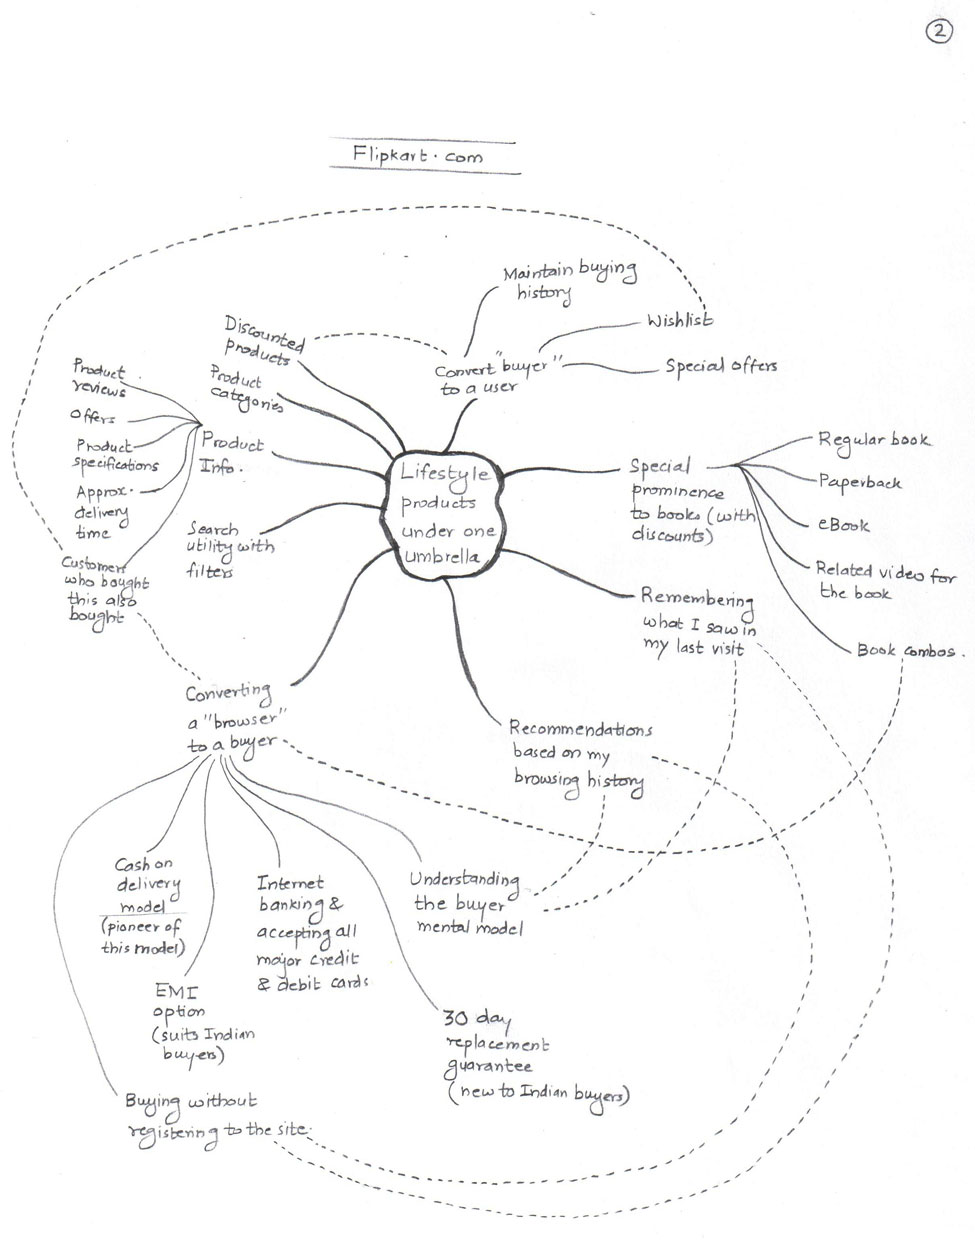 2
Flipkart.com
Maintain buying
history
Wishlist
Convert "buyer"
to a user
Special offers
Discounted
products
Product
categories
Product
reviews
Offers
Product
specifications
Approx.
delivery
time
Customers
who bought
this also
bought
Product
Info.
Search
utility with
filters
Lifestyle
products
under one
umbrella
Special
prominence
to books (with
discounts)
Regular book
Paperback
eBook
Related video for
the book
Book combos.
Remembering
what I saw in
my last visit
Recommendations
based on my
browsing history
Converting
a "browser"
to a buyer
Cash on
delivery
model
(pioneer of
this model)
EMI
option
(suits Indian
buyers)
Internet
banking &
accepting all
major credit
& debit cards
Understanding
the buyer
mental model
30 day
replacement
guarantee
(new to Indian buyers)
Buying without
registering to the site.